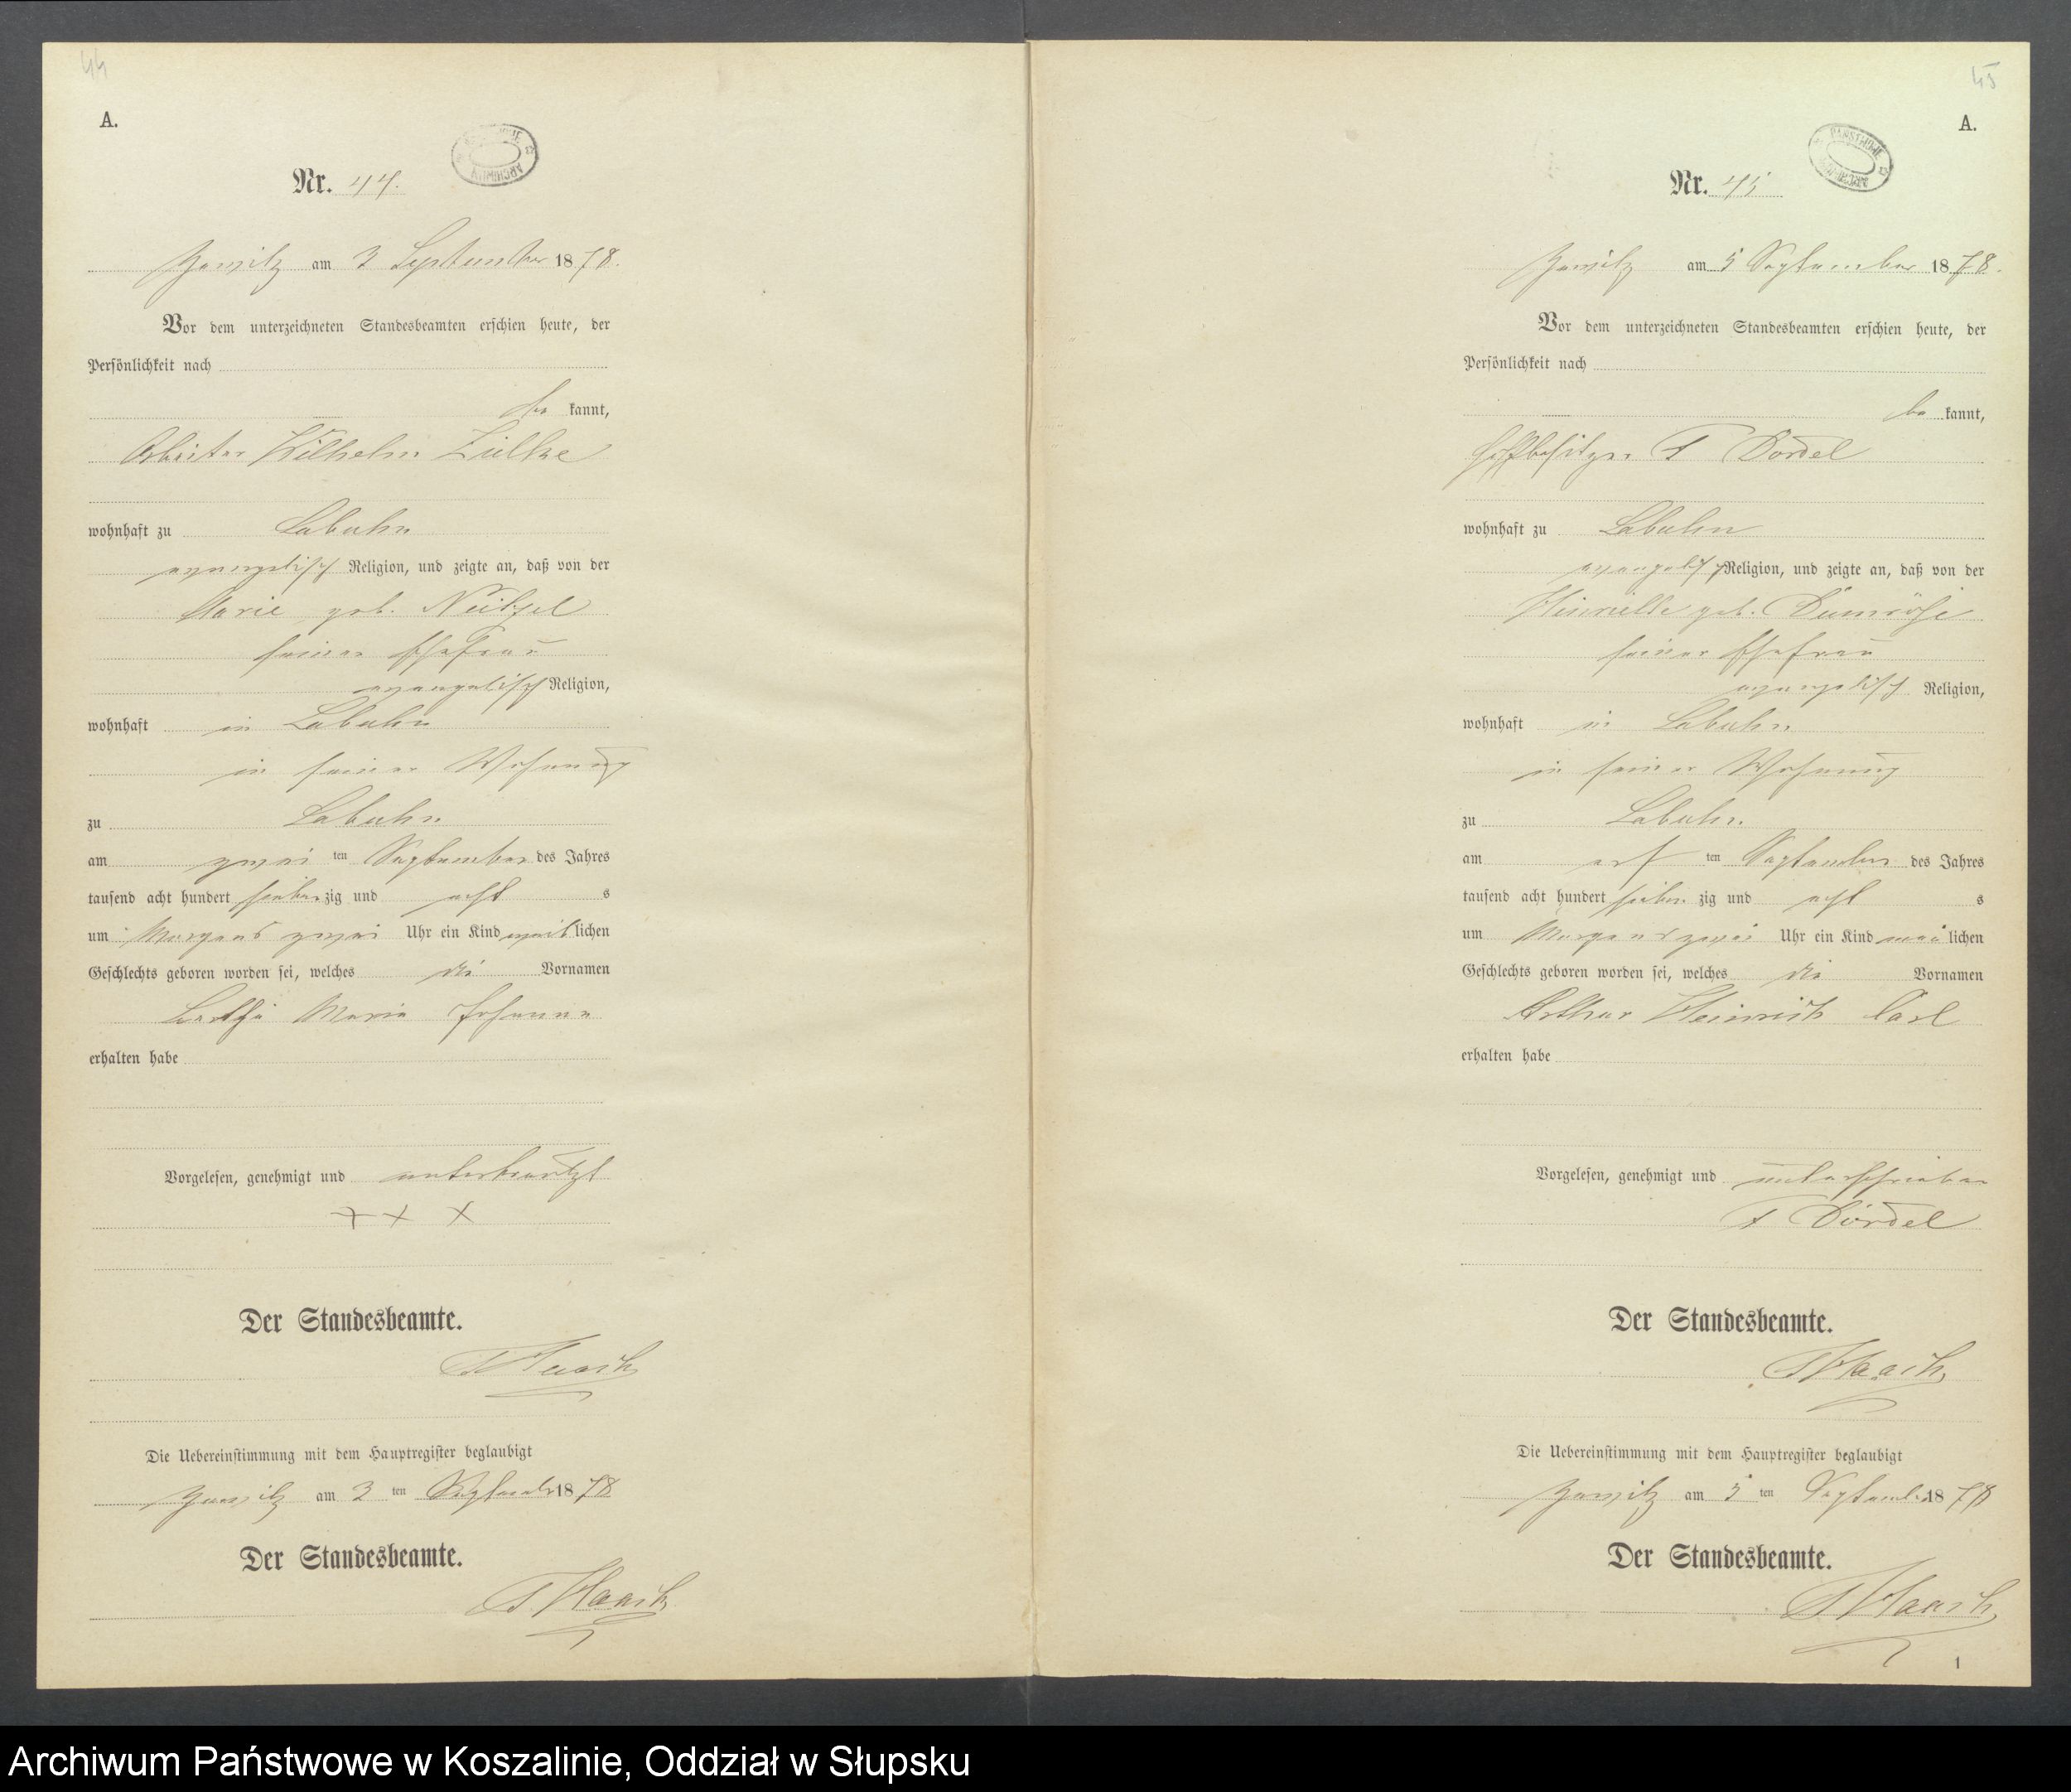 44
A.
Nr. 44.
am 3 September 1878.
Vor dem unterzeichneten Standesbeamten erschien heute, der
Persönlichkeit nach
be kannt,
Arbeiter Wilhelm Zülke
wohnhaft zu Labuhn
evangelisch Religion, und zeigte an, daß von der
Marie geb. Neitzel
seiner Ehefrau
evangelisch Religion,
wohnhaft in Labuhn
in seiner Wohnung
zu Labuhn
am zwei ten September des Jahres
tausend acht hundert sieben zig und acht s
um Morgens zwei Uhr ein Kind weib lichen
Geschlechts geboren worden sei, welches die Vornamen
Bertha Maria Johanna
erhalten habe
Vorgelesen, genehmigt und unterkreuzt
+ + +
Der Standesbeamte.
Die Uebereinstimmung mit dem Hauptregister beglaubigt
am 3 ten September 1878
Der Standesbeamte.
45
A.
PAŃSTWOWE
ARCHIWUM
Nr. 45
am 5 September 1878.
Vor dem unterzeichneten Standesbeamten erschien heute, der
Persönlichkeit nach
be kannt,
Hofbesitzer F Dördel
wohnhaft zu Labuhn
evangelisch Religion, und zeigte an, daß von der
geb. Dumröse
seiner Ehefrau
evangelisch Religion,
wohnhaft in Labuhn
in seiner Wohnung
zu Labuhn
am ers ten September des Jahres
tausend acht hundert sieben zig und acht s
um Morgens zwei Uhr ein Kind män lichen
Geschlechts geboren worden sei, welches die Vornamen
Arthur Heinrich Carl
erhalten habe
Vorgelesen, genehmigt und unterschrieben
F Dördel
Der Standesbeamte.
Die Uebereinstimmung mit dem Hauptregister beglaubigt
am 5 ten September 1878
Der Standesbeamte.
1
Archiwum Państwowe w Koszalinie, Oddział w Słupsku